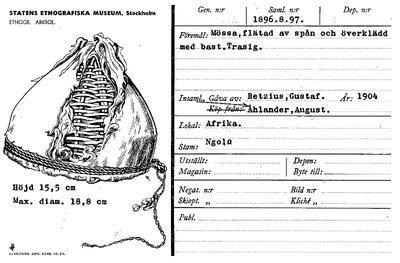 STATENS ETNOGRAFISKA MUSEUM, Stockholm
ETNOGR. ARKBOL.
Höjd 15,5 cm
Max. diam. 18,8 cm
Gen. n:r
Saml. n:r
Dep. n:r
1896.8.97.
Föremål: Mössa,flätad av spån och överklädd
med bast.Trasig.
Insaml. Gåva av: Retzius,Gustaf. År: 1904
Köp från: Åhlander,August.
Lokal: Afrika.
Stam: Ngolo
Utställt:
Depon:
Magasin:
Byte till:
Negat. n:r
Bild n:r
Skiopt. „
Kliché „
Publ.